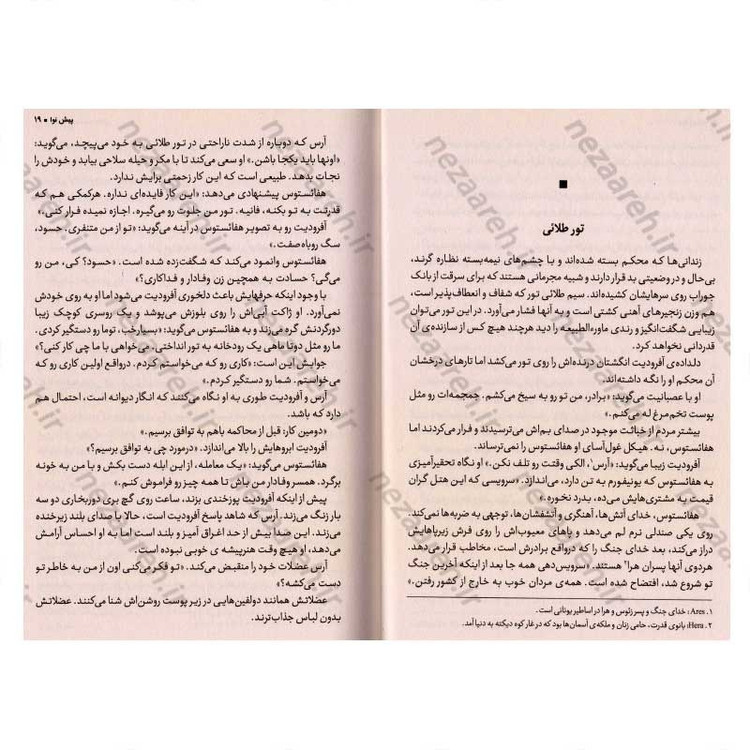 تور طلائی
زندانی‌ها که محکم بسته شده‌اند و با چشم‌های نیمه‌بسته نظاره گرند،
بی‌حال و در وضعیتی بد قرار دارند و شبیه مجرمانی هستند که برای سرقت از بانک
جوراب روی سرهایشان کشیده‌اند. سیم طلائی تور که شفاف و انعطاف‌پذیر است،
هم وزن زنجیرهای آهنی کشتی است و به آنها فشار می‌آورد. در این تور می‌توان
زیبایی شگفت‌انگیز و رندی ماوره‌الطبیعه را دید هرچند هیچ کس از سازنده‌ی آن
قدردانی نخواهد کرد.
دلداده‌ی آفرودیت انگشتان درنده‌اش را روی تور می‌کشد اما تارهای درخشان
آن محکم او را نگه داشته‌اند.
او با عصبانیت می‌گوید: «برادر، من تو رو به سیخ می‌کشم. جمجمه‌ات رو مثل
پوست تخم‌مرغ له می‌کنم.»
بیشتر مردم از خباثت موجود در صدای بم‌اش می‌ترسیدند و فرار می‌کردند اما
هفائستوس، نه. هیکل غول‌آسای او هفائستوس را نمی‌ترساند.
آفرودیت زیبا می‌گوید: «آرس۱، الکی وقتت رو تلف نکن.» او نگاه تحقیرآمیزی
به هفائستوس که یونیفورم به تن دارد، می‌اندازد. «سرویسی که این هتل گران
قیمت به مشتری‌هایش می‌ده، بدرد نخوره.»
هفائستوس، خدای آتش‌ها، آهنگری و آتشفشان‌ها، توجهی به ضربه‌ها نمی‌کند.
روی یکی صندلی نرم لم می‌دهد و پاهای معیوب‌اش را روی فرش زیرپاهایش
دراز می‌کند، بعد خدای جنگ را که درواقع برادرش است، مخاطب قرار می‌دهد.
هردوی آنها پسران هرا۲ هستند. «سرویس‌دهی همه جا بعد از اینکه آخرین جنگ
تو شروع شد، افتضاح شده است. همه‌ی مردان خوب به خارج از کشور رفتن.»
۱. Ares: خدای جنگ و پسر زئوس و هرا در اساطیر یونانی است.
۲. Hera: بانوی قدرت، حامی زنان و ملکه‌ی آسمان‌ها بود که در غار کوه دیکته به دنیا آمد.
پیش نوا ■ ۱۹
آرس که دوباره از شدت ناراحتی در تور طلائی به خود می‌پیچد، می‌گوید:
«اونها باید یکجا باشن.» او سعی می‌کند تا با مکر و حیله سلاحی بیابد و خودش را
نجات بدهد. طبیعی است که این کار زحمتی برایش ندارد.
هفائستوس پیشنهادی می‌دهد: «این کار فایده‌ای نداره. هرکمکی هم که
قدرتت به تو بکنه، فانیه. تور من جلوت رو می‌گیره. اجازه نمیده فرار کنی.»
آفرودیت رو به تصویر هفائستوس در آینه می‌گوید: «تو از من متنفری. حسود،
سگ روباه‌صفت.»
هفائستوس وانمود می‌کند که شگفت‌زده شده است. «حسود؟ کی، من رو
می‌گی؟ حسادت به همچین زن وفادار و فداکاری؟»
با وجود اینکه حرفهایش باعث دلخوری آفرودیت می‌شود اما او به روی خودش
نمی‌آورد. او ژاکت آبی‌اش را روی بلوزش می‌پوشد و یک روسری کوچک زیبا
دورگردنش گره می‌زند و به هفائستوس می‌گوید: «بسیارخب، توما رو دستگیر کردی.
ما رو مثل دوتا ماهی یک رودخانه به تور انداختی. می‌خواهی با ما چی کار کنی؟»
جوابش این است: «کاری رو که می‌خواستم کردم. درواقع اولین کاری رو که
می‌خواستم. شما رو دستگیر کردم.»
آرس و آفرودیت طوری به او نگاه می‌کنند که انگار دیوانه است، احتمال هم
دارد که باشد.
«دومین کار: قبل از محاکمه باهم به توافق برسیم.»
آفرودیت ابروهایش را بالا می‌اندازد. «درمورد چی به توافق برسیم؟»
هفائستوس می‌گوید: «یک معامله، از این ابله دست بکش و با من به خونه
برگرد. همسر وفادار من باش تا همه چیز رو فراموش کنم.»
پیش از اینکه آفرودیت پوزخندی بزند، ساعت روی گچ بری دوربخاری دو سه
بار زنگ می‌زند. آرس که شاهد پاسخ آفرودیت است، حالا با صدای بلند زیرخنده
می‌زند. این صدا بیش از حد اغراق آمیز و بلند است اما به او احساس آرامش
می‌دهد، او هیچ وقت هنرپیشه ی خوبی نبوده است.
آرس عضلات خود را منقبض می‌کند. «تو فکر می‌کنی اون از من به خاطر تو
دست می‌کشه؟»
عضلاتش همانند دولفین‌هایی در زیر پوست روشن‌اش شنا می‌کنند. عضلاتش
بدون لباس جذاب‌ترند.
nezaareh.ir